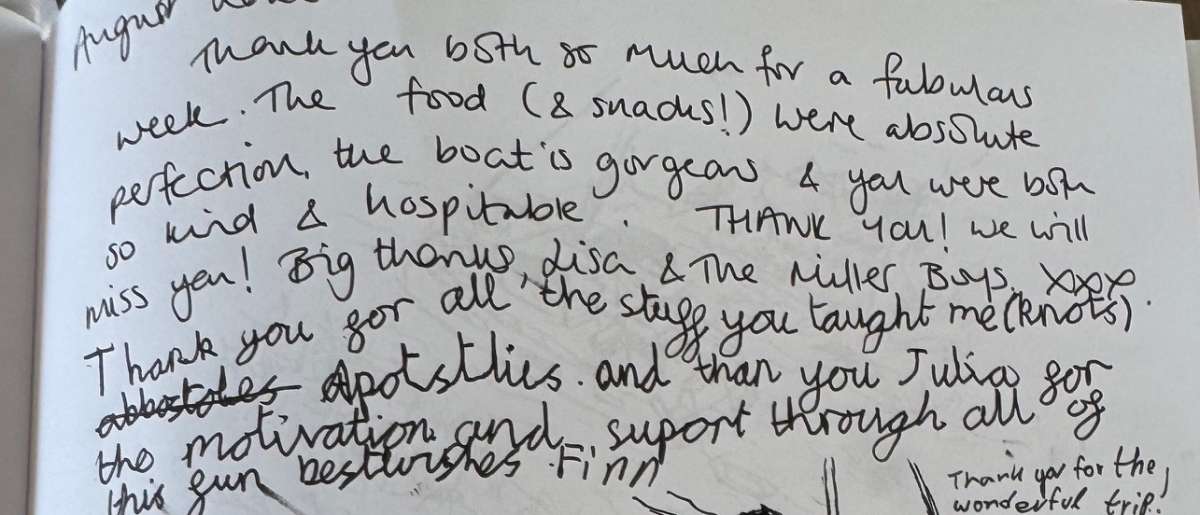 August
Thank you both so much for a fabulous
week. The food (& snacks!) were absolute
perfection, the boat is gorgeous & you were both
so kind & hospitable. THANK you! we will
miss you! Big thanks, Lisa & The Miller Boys. xxxx
Thank you for all the stuff you taught me (knots).
abbostoles Apotstlies. and than you Julia for
the motivation and suport through all of
this fun bestwishes Finn
Thank you for the
wonderful trip!